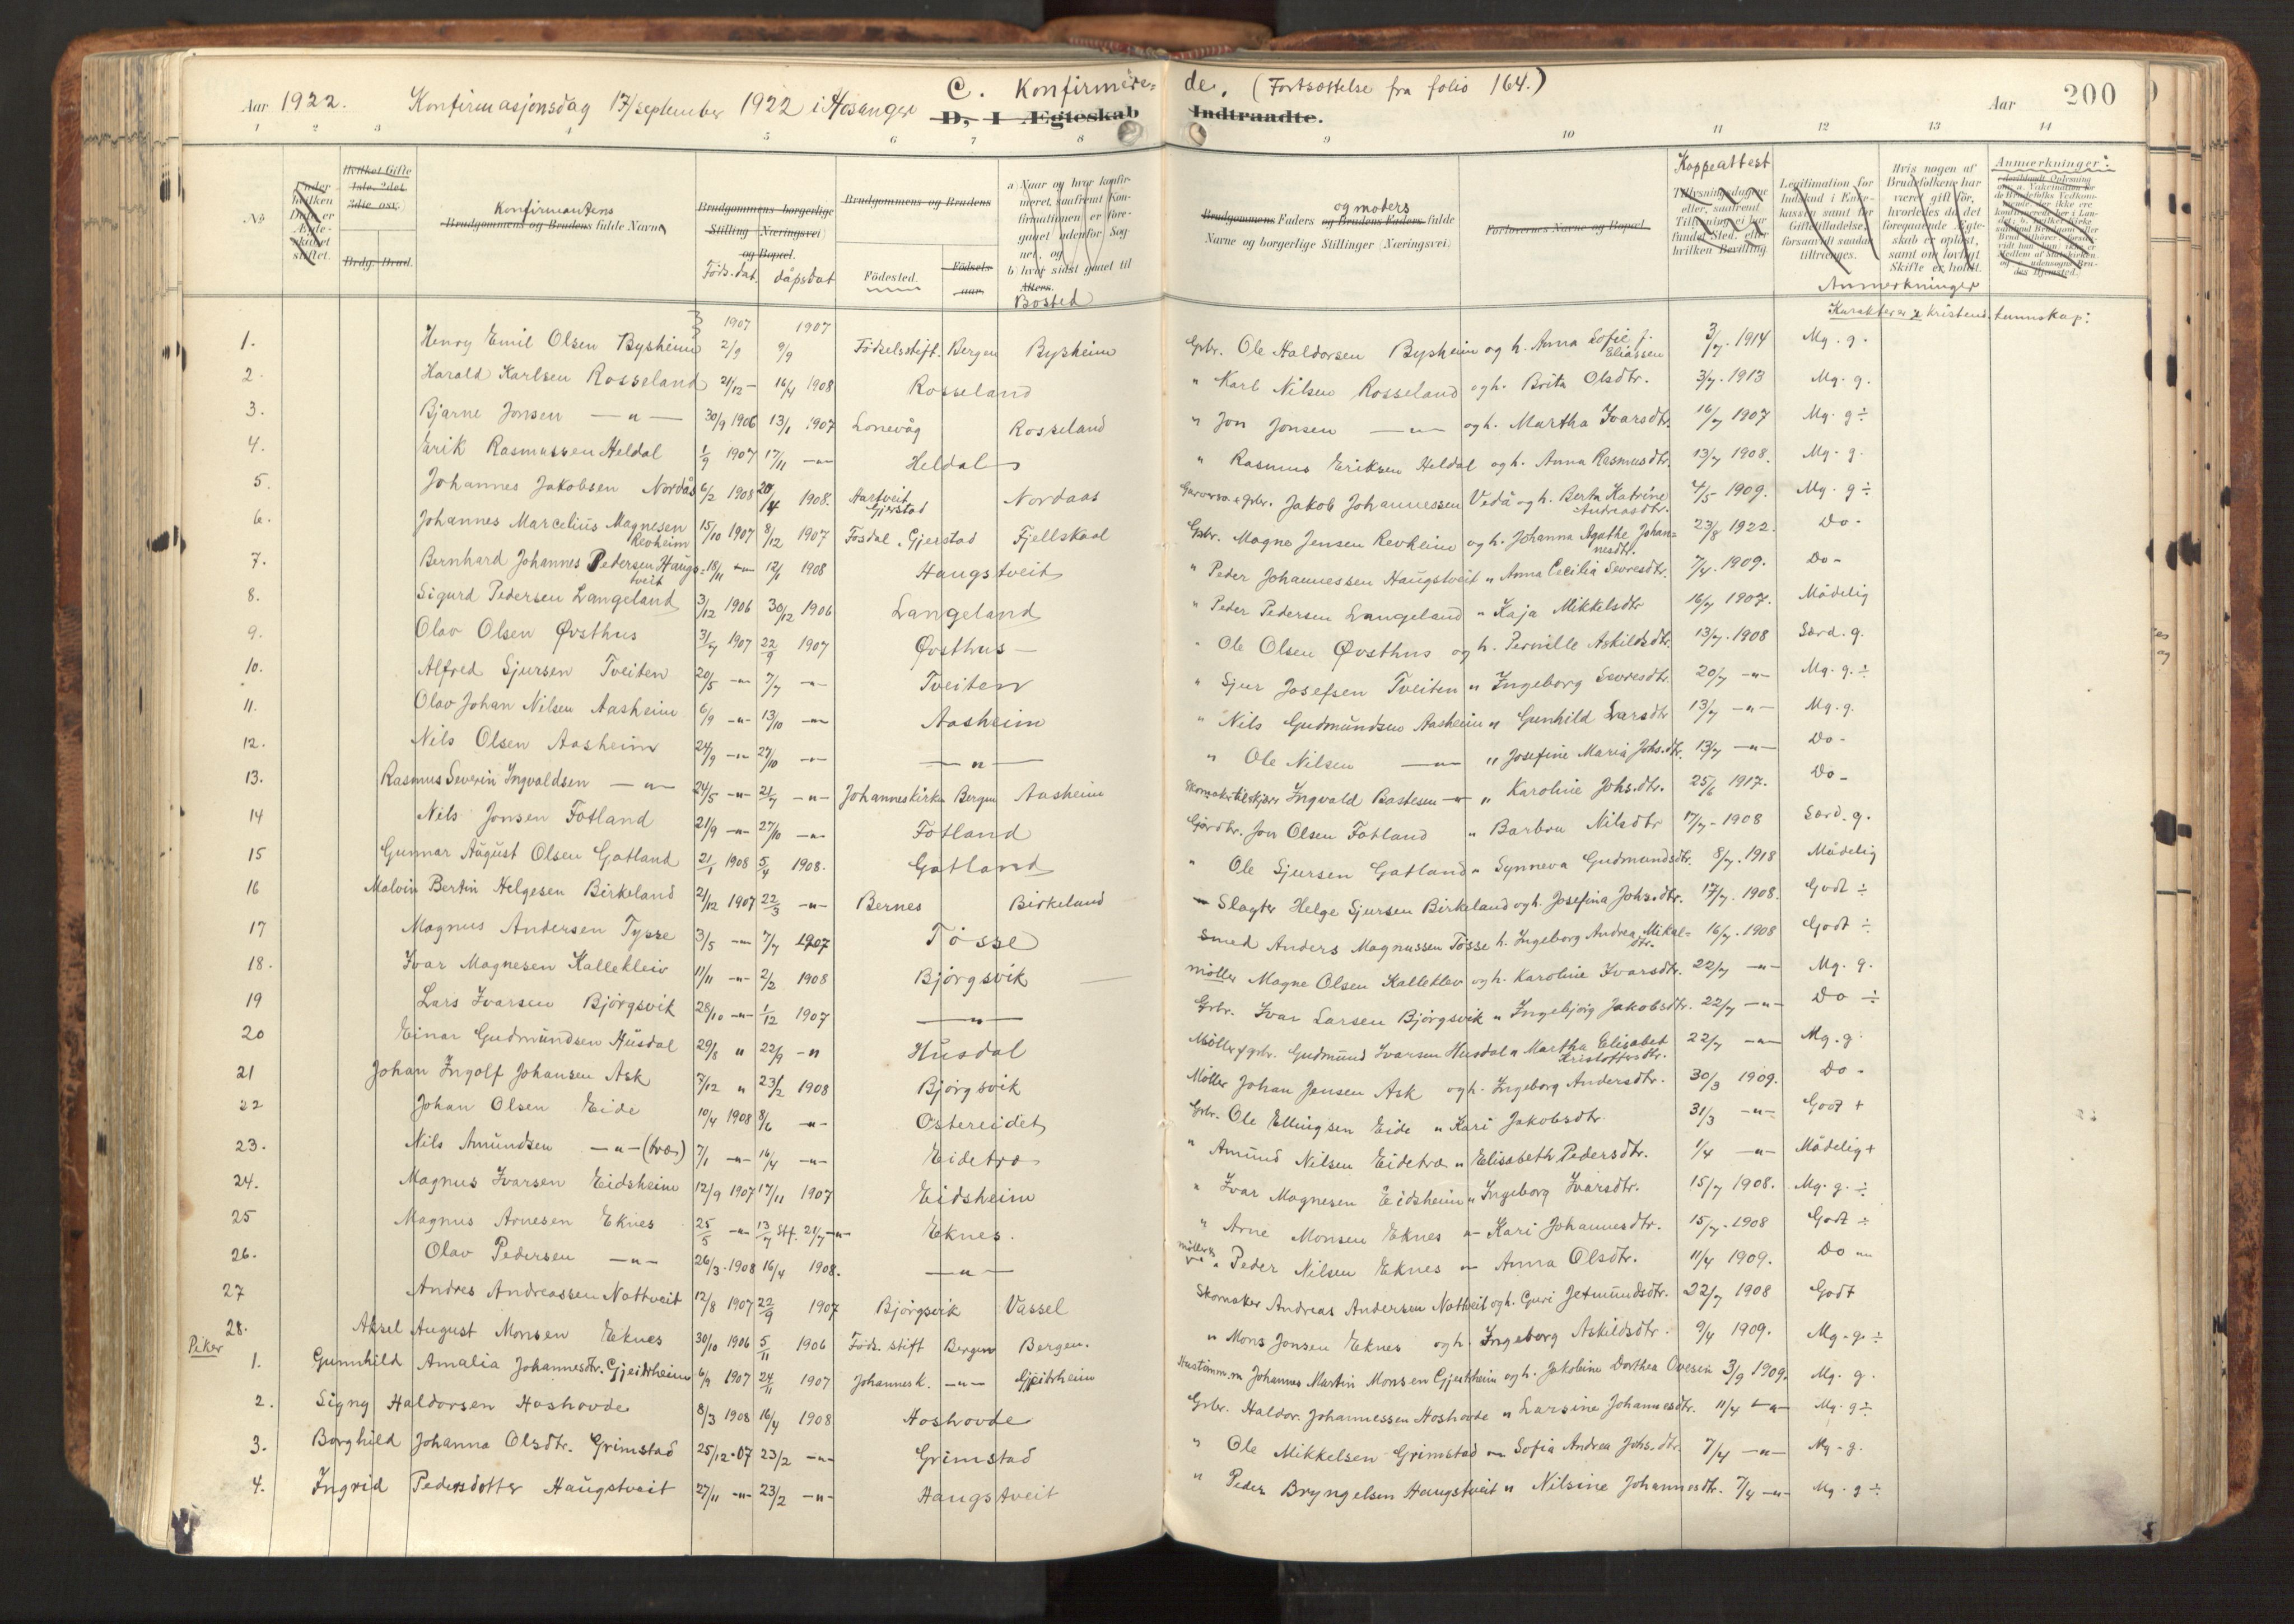 Aar 1922. Konfirmasjonsdag 17/september 1922 i Hosanger C. Konfirmere= de. (Fortsættelse fra folio 164.) Aar 200
D, I Ægteskab Indtraadte.
1 2 3 4 5 6 7 8 9 10 11 12 13 14
No
Under hvilken Dato er Ægteskabet stiftet.
Hvilket Gifte 1ste, 2det, 3die osv.
Brdg. Brud.
Konfirmantens
Brudgommens og Brudens fulde Navn
Brudgommens borgerlige Stilling (Næringsvei) og Bopæl.
Föds.dat. dåpsdat
Brudgommens og Brudens
Födested. Födsels-aar.
a) Naar og hvor konfirmeret, saafremt Konfirmationen er foregaaet udenfor Sognet, og
b) hvor sidst gaaet til Alters.
Bosted
og moders
Brudgommens Faders og Brudens Faders fulde Navne og borgerlige Stillinger (Næringsvei).
Forlovernes Navne og Bopæl.
Koppeattest
Tillysningsdagene eller, saafremt Tillysning ei har fundet Sted, efter hvilken Bevilling.
Legitimation for Indskud i Enkekassen samt for Giftetilladelse, forsaavidt saadan tiltrænges.
Hvis nogen af Brudefolkene har været gift før, hvorledes da det foregaaende Ægteskab er opløst, samt om lovligt Skifte er holdt.
Anmærkninger:
Anmerkninger
Karakterer i kristend. kunnskap:
1. Henry Emil Olsen Bysheim 1907 2/9 1907 9/9 Födselsstift. Bergen Bysheim Grbr. Ole Haldorsen Bysheim og h. Anna Sofie f. Eliassen 3/7. 1914 Mg. g.
2. Harald Karlsen Rosseland 21/12 - 16/4 1908 Rosseland " Karl Nilsen Rosseland og h. Brita Olsdtr. 3/7. 1913 Mg. g.
3. Bjarne Jonsen —"— 30/9 1906 13/1 1907 Lonevåg Rosseland " Jon Jonsen —"— og h. Martha Ivarsdtr. 16/7 1907 Mg. g ÷
4. Erik Rasmussen Heldal 1/9 1907 17/11 —"— Heldal " Rasmus Eriksen Heldal og h. Anna Rasmusdtr. 13/7 1908. Mg. g.
5. Johannes Jakobsen Nordås 6/2 1908 20/4 1908. Hartveit Gjerstad Nordaas Jakob Johannessen Vedå og h. Berta Katrine Andreasdtr. 4/5 1909. Mg. g ÷
6. Johannes Marcelius Magnesen Revheim 15/10 1907 8/12 1907 Fosdal, Gjerstad Fjellskaal Grbr. Magne Jensen Revheim og h. Johanna Agathe Johannesdtr. 23/8 1922. Do -
7. Bernhard Johannes Pedersen Haugs=tveit 18/11 —"— 12/1 1908 Haugstveit " Peder Johannessen Haugstveit " Anna Cecilia Sevresdtr. 7/4. 1909. Do -
8. Sigurd Pedersen Langeland 3/12 1906 30/12 1906 Langeland " Peder Pedersen Langeland " Kaja Mikkelsdtr 16/7 1907. Mådelig
9. Olav Olsen Øvsthus 3/7 1907 22/9 1907 Øvsthus — " Ole Olsen Øvsthus og h. Pernille Askildsdtr. 13/7. 1908 Særd. g.
10. Alfred Sjursen Tveiten 20/5 —"— 7/7 —"— Tveiten " Sjur Josefsen Tveiten " Ingeborg Sevresdtr. 20/7 —"— Mg. g. ÷
11. Olav Johan Nilsen Aasheim 6/9 —"— 13/10 —"— Aasheim " Nils Gudmundsen Aasheim " Gunhild Larsdtr 13/7 —"— Mg. g.
12. Nils Olsen Aasheim 24/9 —"— 27/10 —"— —"— " Ole Nilsen —"— " Josefine Maria Johs.dtr. 13/7 —"— Do -
13. Rasmus Severin Ingvaldsen —"— 24/5 —"— 21/7 —"— Johanneskirke Bergen Aasheim Ingvald Bastesen —"— " Karoline Johs.dtr. 25/6 1917. Do -
14 Nils Jonsen Fotland 21/9 —"— 27/10 —"— Fotland Gjørdbr. Jon Olsen Fotland " Barbra Nilsdtr 17/7 - 1908 Særd. g.
15 Gunnar August Olsen Gatland 21/1 1908 5/4 1908. Gatland " Ole Sjursen Gatland " Synneva Gudmundsdtr. 8/7. 1918 Mådelig
16 Malvin Bertin Helgesen Birkeland 21/12 1907 22/3 —"— Bernes Birkeland Slagter Helge Sjursen Birkeland og h. Josefina Johs.dtr. 17/7. 1908. Godt ÷
17 Magnus Andersen Tysse 3/5 —"— 7/7 1907 Tösse Smed Anders Magnussen Tösse h. Ingeborg Andrea Mikal=dtr. 16/7. 1908 Godt ÷
18. Ivar Magnesen Kallekleiv 11/11 —"— 2/2 1908 Björgsvik Möller Magne Olsen Kalleklev og h. Karoline Ivarsdtr. 22/7 —"— Mg. g.
19 Lars Ivarsen Björgsvik 28/10 —"— 1/12 1907 —"— Grbr. Ivar Larsen Björgsvik " Ingebjörg Jakobsdtr. 22/7 —"— Do ÷
20 Einar Gudmundsen Husdal 29/8 " 22/9 —" Husdal Möller, grbr. Gudmund Ivarsen Husdal " Martha Elisabet Kristoffersdtr. 22/7 —"— Mg. g.
21 Johan Ingolf Johansen Ask 7/12 " 23/2 1908 Björgsvik Möller Johan Jensen Ask og h. Ingeborg Andersdtr. 30/3 1909. Do -
22 Johan Olsen Eide 10/4 1908 8/6 —"— Ostereidet Grbr. Ole Ellingsen Eide " Kari Jakobsdtr. 31/3 —"— Godt +
23. Nils Amundsen —"— (træ) 7/1 —"— 16/4 —"— Eidetræ " Amund Nilsen Eidetræ " Elisabeth Pedersdtr. 1/4 —"— Mådelig +
24. Magnus Ivarsen Eidsheim 12/9 1907 17/11 1907 Eidsheim " Ivar Magnesen Eidsheim " Ingeborg Ivarsdtr. 15/7 1908. Mg. g. ÷
25 Magnus Arnesen Eknes 25/5 —"— 13/7 Stf. 21/7 —"— Eknes. " Arne Monsen Eknes —"— Kari Johannesdtr. 15/7. 1908 Godt ÷
26. Olav Pedersen —"— 26/3. 1908 16/4 1908. —"— Peder Nilsen Eknes —"— Anna Olsdtr. 11/4 1909. Do —
27 Andres Andreassen Nottveit 12/8 1907 22/9 1907 Björgsvik Vassel Skomaker Andreas Andersen Notveit og h. Guri Jetmundsdtr. 22/7 1908 Godt
28. Aksel August Monsen Eknes 30/10 1906 5/11 1906 Föds. stift Bergen Bergen. " Mons Jonsen Eknes og h. Ingeborg Askildsdtr. 9/4 1909. Mg. g. ÷
Piker
1. Gunnhild Amalia Johannesdtr. Gjeitrheim 6/9 1907 24/11 1907 Johannesk. —"— Gjeitrheim Hustömm.m Johannes Martin Monsen Gjeitrheim og h. Jakobine Dorthea Ovesen 3/9 1909. Mg. g.
2. Signy Haldorsen Hoshovde 8/3 1908 16/4 1908 Hoshovde Grbr. Haldor Johannessen Hoshovde " Larsine Johannesdtr. 11/4 —"— Mg. g ÷
3. Borghild Johanna Olsdtr. Grimstad 25/12.07 23/2 —"— Grimstad " Ole Mikkelsen Grimstad —"— Sofia Andrea Johs.dtr. 7/4 —"— Mg. g.
4. Ingrid Pedersdotter Haugstveit 27/11 —"— 23/2 —"— Haugstveit " Peder Bryngelsen Haugstveit " Nilsine Johannesdtr. 7/4 —"— Mg. g ÷